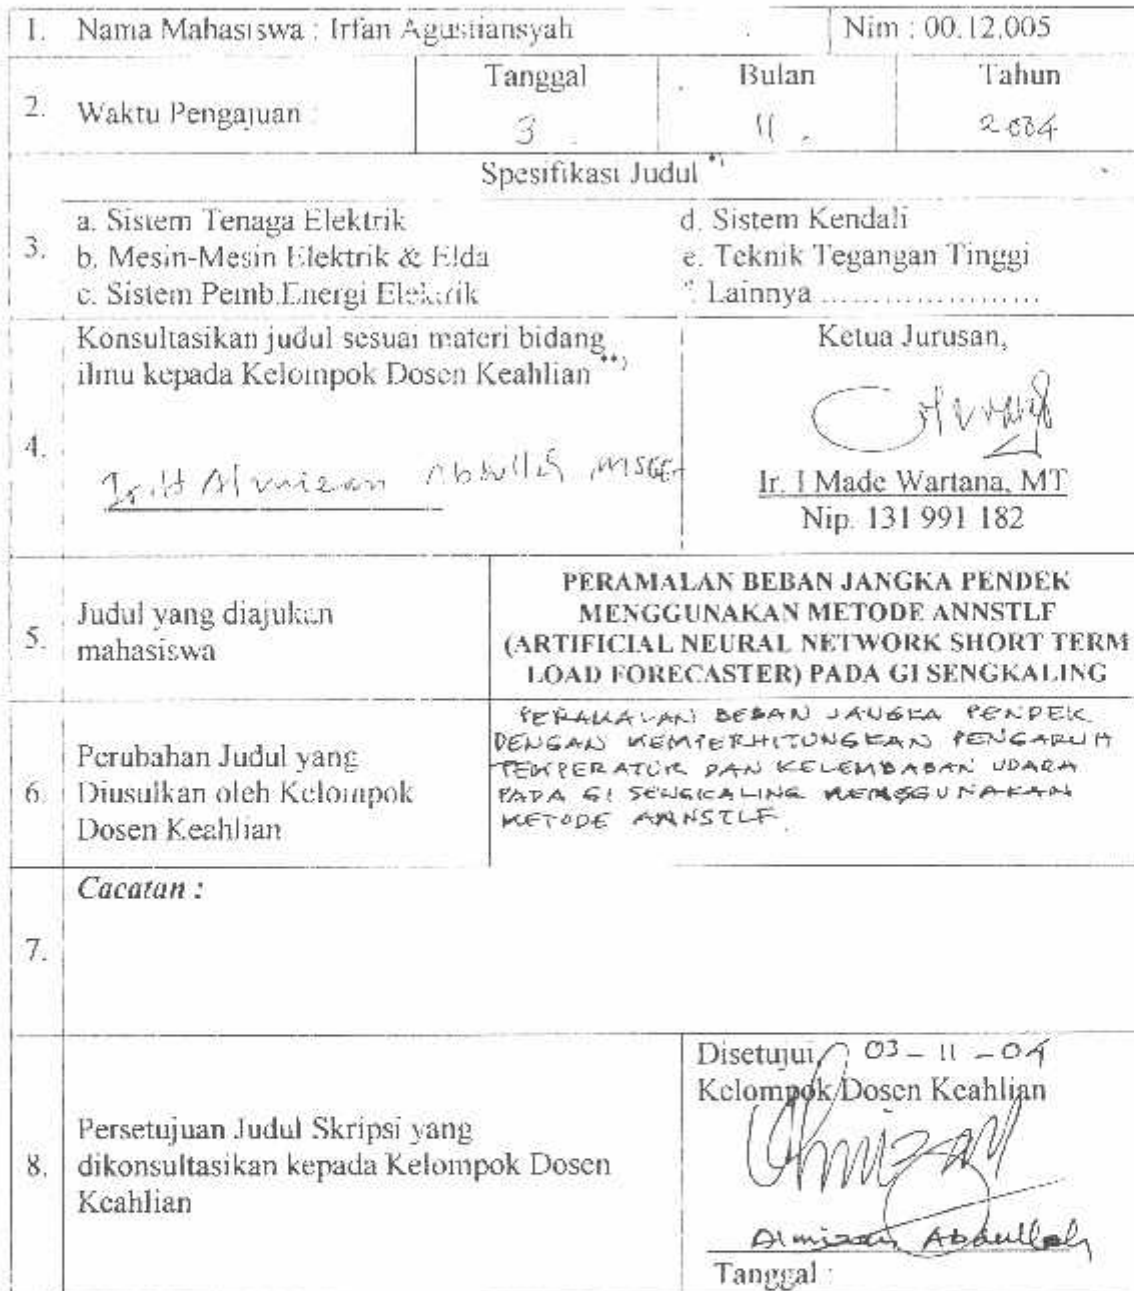 1. Nama Mahasiswa : Irfan Agustiansyah Nim : 00.12.005
2. Waktu Pengajuan : Tanggal Bulan Tahun
3 11 2004
Spesifikasi Judul *)
3. a. Sistem Tenaga Elektrik d. Sistem Kendali
b. Mesin-Mesin Elektrik & Elda e. Teknik Tegangan Tinggi
c. Sistem Pemb.Energi Elektrik f. Lainnya .....................
4. Konsultasikan judul sesuai materi bidang
ilmu kepada Kelompok Dosen Keahlian **)
Ir. H Almizan Abdullah MSEE
Ketua Jurusan,
Ir. I Made Wartana, MT
Nip. 131 991 182
5. Judul yang diajukan
mahasiswa
PERAMALAN BEBAN JANGKA PENDEK
MENGGUNAKAN METODE ANNSTLF
(ARTIFICIAL NEURAL NETWORK SHORT TERM
LOAD FORECASTER) PADA GI SENGKALING
6. Perubahan Judul yang
Diusulkan oleh Kelompok
Dosen Keahlian
PERAMALAN BEBAN JANGKA PENDEK
DENGAN MEMPERHITUNGKAN PENGARUH
TEMPERATUR DAN KELEMBABAN UDARA
PADA GI SENGKALING MENGGUNAKAN
METODE ANNSTLF.
7. Cacatan :
8. Persetujuan Judul Skripsi yang
dikonsultasikan kepada Kelompok Dosen
Keahlian
Disetujui, 03-11-04
Kelompok Dosen Keahlian
Almizan Abdullah
Tanggal :